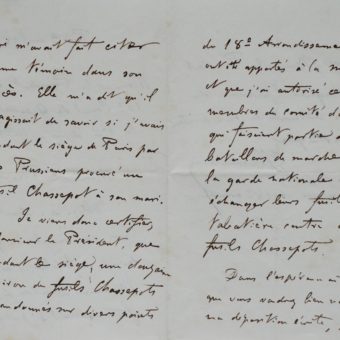 m'avait fait citer
témoin dans son
Elle m'a dit qu'il
de savoir si j'avais
le siège de Paris par
Prussiens procuré un
Chassepot à son mari.
Je viens donc certifier,
le Président, que
le siège, une douzaine
de fusils Chassepots
sur divers points
du 18e Arrondissement
ont été apportés à la
et que j'ai autorisé
membres du comité
qui faisaient partie
bataillons de marche
la garde nationale
échanger leurs fusils
tabatière contre
fusils Chassepots.
Dans l'espérance
que vous voudrez bien
ma déposition écrite,